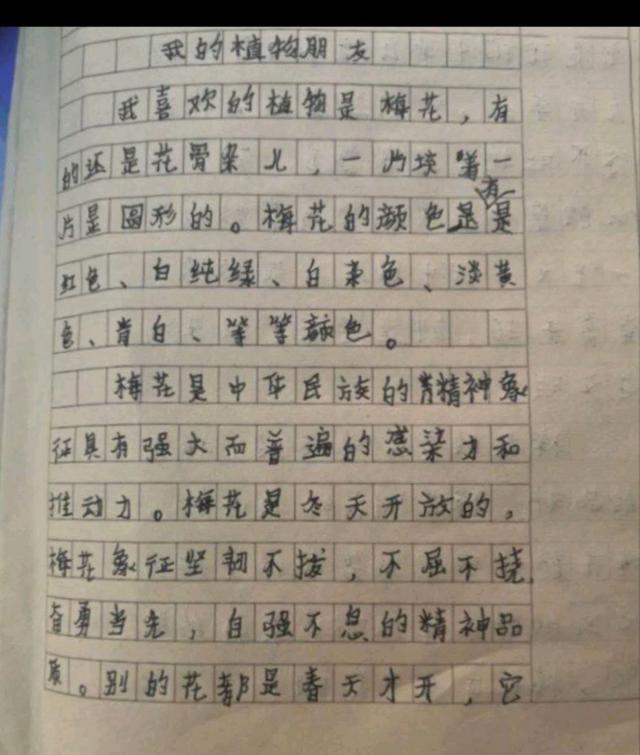 我的植物朋友
我喜欢的植物是梅花，有
的还是花骨朵儿，一片挨着一
片是圆形的。梅花的颜色有是
红色、白纯绿、白枣色、淡黄
色、青白、等等颜色。
梅花是中华民族的精神象
征具有强大而普遍的感染力和
推动力。梅花是冬天开放的，
梅花象征坚韧不拔，不屈不挠
奋勇当先，自强不息的精神品
质。别的花都是春天才开，它